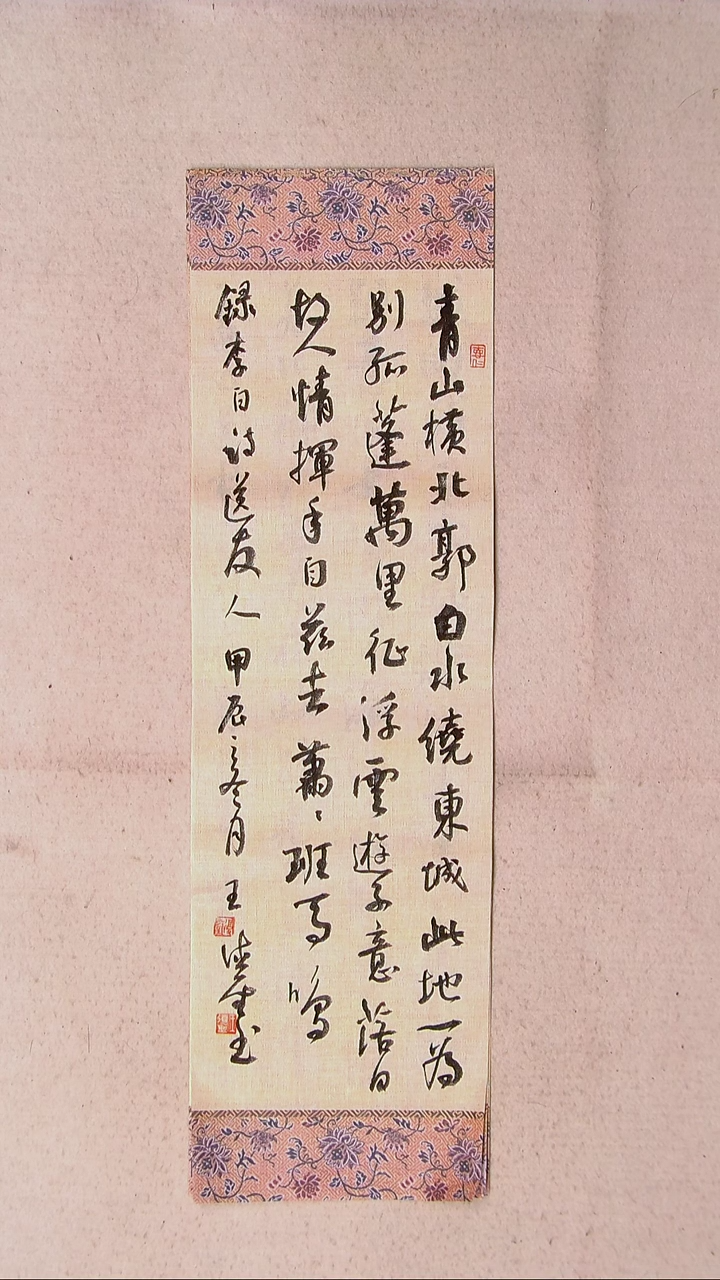 青山橫北郭白水繞東城此地一為
別孤蓬萬里征浮雲遊子意落日
故人情揮手自茲去蕭〻班馬鳴
錄李白詩送友人甲辰之冬月王